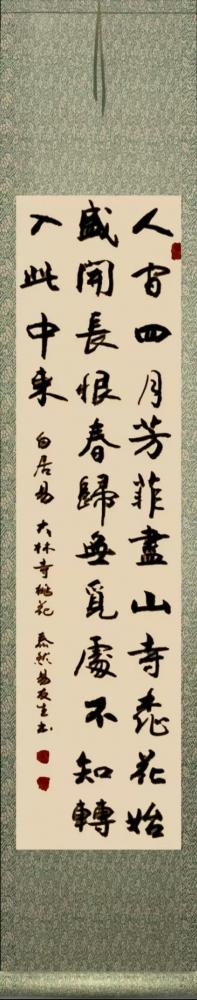 人間四月芳菲盡山寺桃花始
盛開長恨春歸無覓處不知轉
入此中來
白居易大林寺桃花